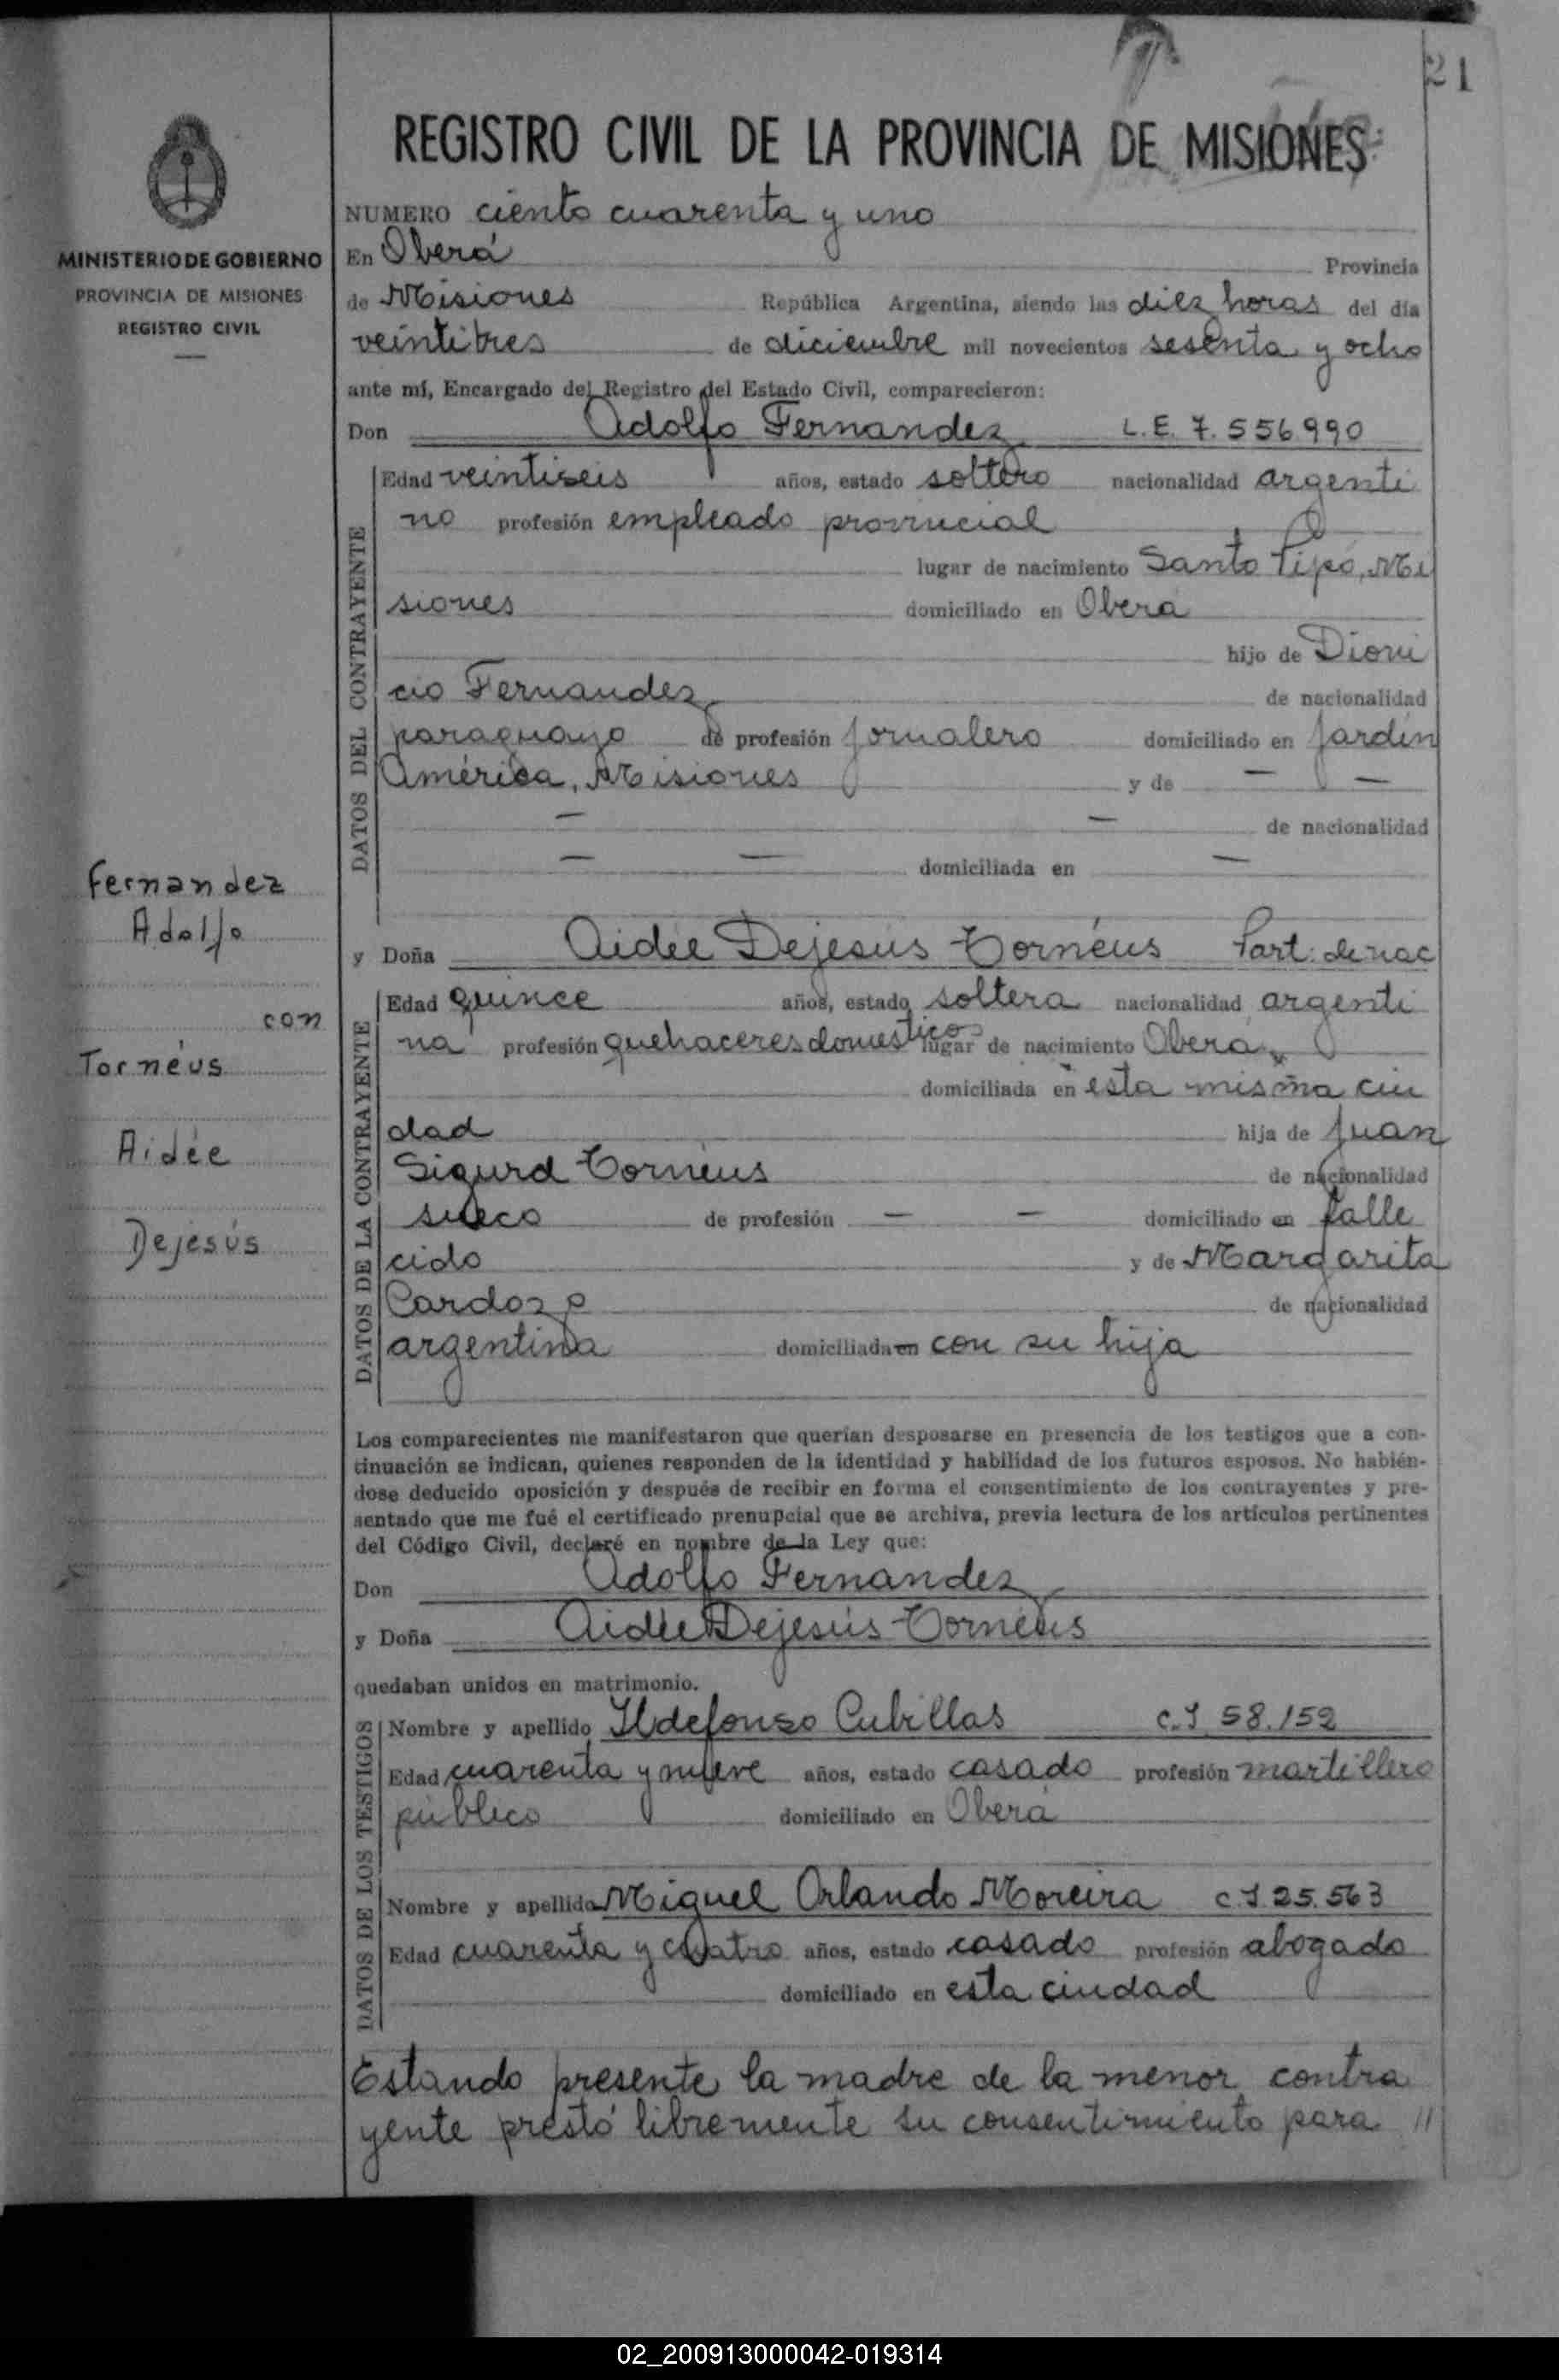 21
REGISTRO CIVIL DE LA PROVINCIA DE MISIONES
MINISTERIO DE GOBIERNO
PROVINCIA DE MISIONES
REGISTRO CIVIL
Fernandez
Adolfo
con
Tornéus
Aidée
Dejesús
NUMERO ciento cuarenta y uno
En Oberá Provincia
de Misiones República Argentina, siendo las diez horas del día
veintitres de diciembre mil novecientos sesenta y ocho
ante mí, Encargado del Registro del Estado Civil, comparecieron:
Don Adolfo Fernandez L.E. 7.556990
DATOS DEL CONTRAYENTE
Edad veintiseis años, estado soltero nacionalidad argenti
no profesión empleado provincial
lugar de nacimiento Santo Pipó, Mi
siones domiciliado en Oberá
hijo de Dioni
cio Fernandez de nacionalidad
paraguayo de profesión jornalero domiciliado en Jardín
América, Misiones y de — —
— — de nacionalidad
— — domiciliada en —
y Doña Aidée Dejesús Tornéus Part. de nac
DATOS DE LA CONTRAYENTE
Edad quince años, estado soltera nacionalidad argenti
na profesión quehaceres domesticos lugar de nacimiento Oberá
domiciliada en esta misma ciu
dad hija de Juan
Sigurd Tornéus de nacionalidad
sueco de profesión — — domiciliado en falle
cido y de Margarita
Cardozo de nacionalidad
argentina domiciliada en con su hija
Los comparecientes me manifestaron que querían desposarse en presencia de los testigos que a con-
tinuación se indican, quienes responden de la identidad y habilidad de los futuros esposos. No habién-
dose deducido oposición y después de recibir en forma el consentimiento de los contrayentes y pre-
sentado que me fué el certificado prenupcial que se archiva, previa lectura de los artículos pertinentes
del Código Civil, declaré en nombre de la Ley que:
Don Adolfo Fernandez
y Doña Aidée Dejesús Tornéus
quedaban unidos en matrimonio.
DATOS DE LOS TESTIGOS
Nombre y apellido Ildefonso Cubillas C.I 58.152
Edad cuarenta y nueve años, estado casado profesión martillero
público domiciliado en Oberá
Nombre y apellido Miguel Orlando Moreira C.I 25.563
Edad cuarenta y cuatro años, estado casado profesión abogado
domiciliado en esta ciudad
Estando presente la madre de la menor contra
yente prestó libremente su consentimiento para //
02_200913000042-019314